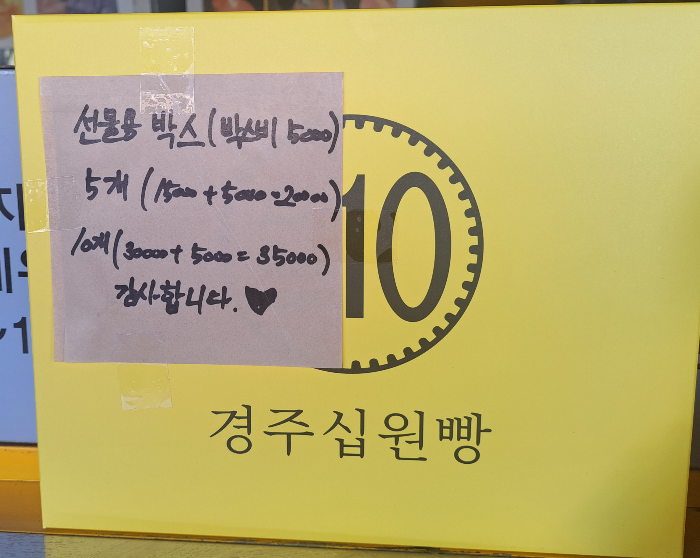 선물용 박스(박스비 5000)
5개 (15000+5000=20000)
10개(30000+5000=35000)
감사합니다. ♥
10
경주십원빵